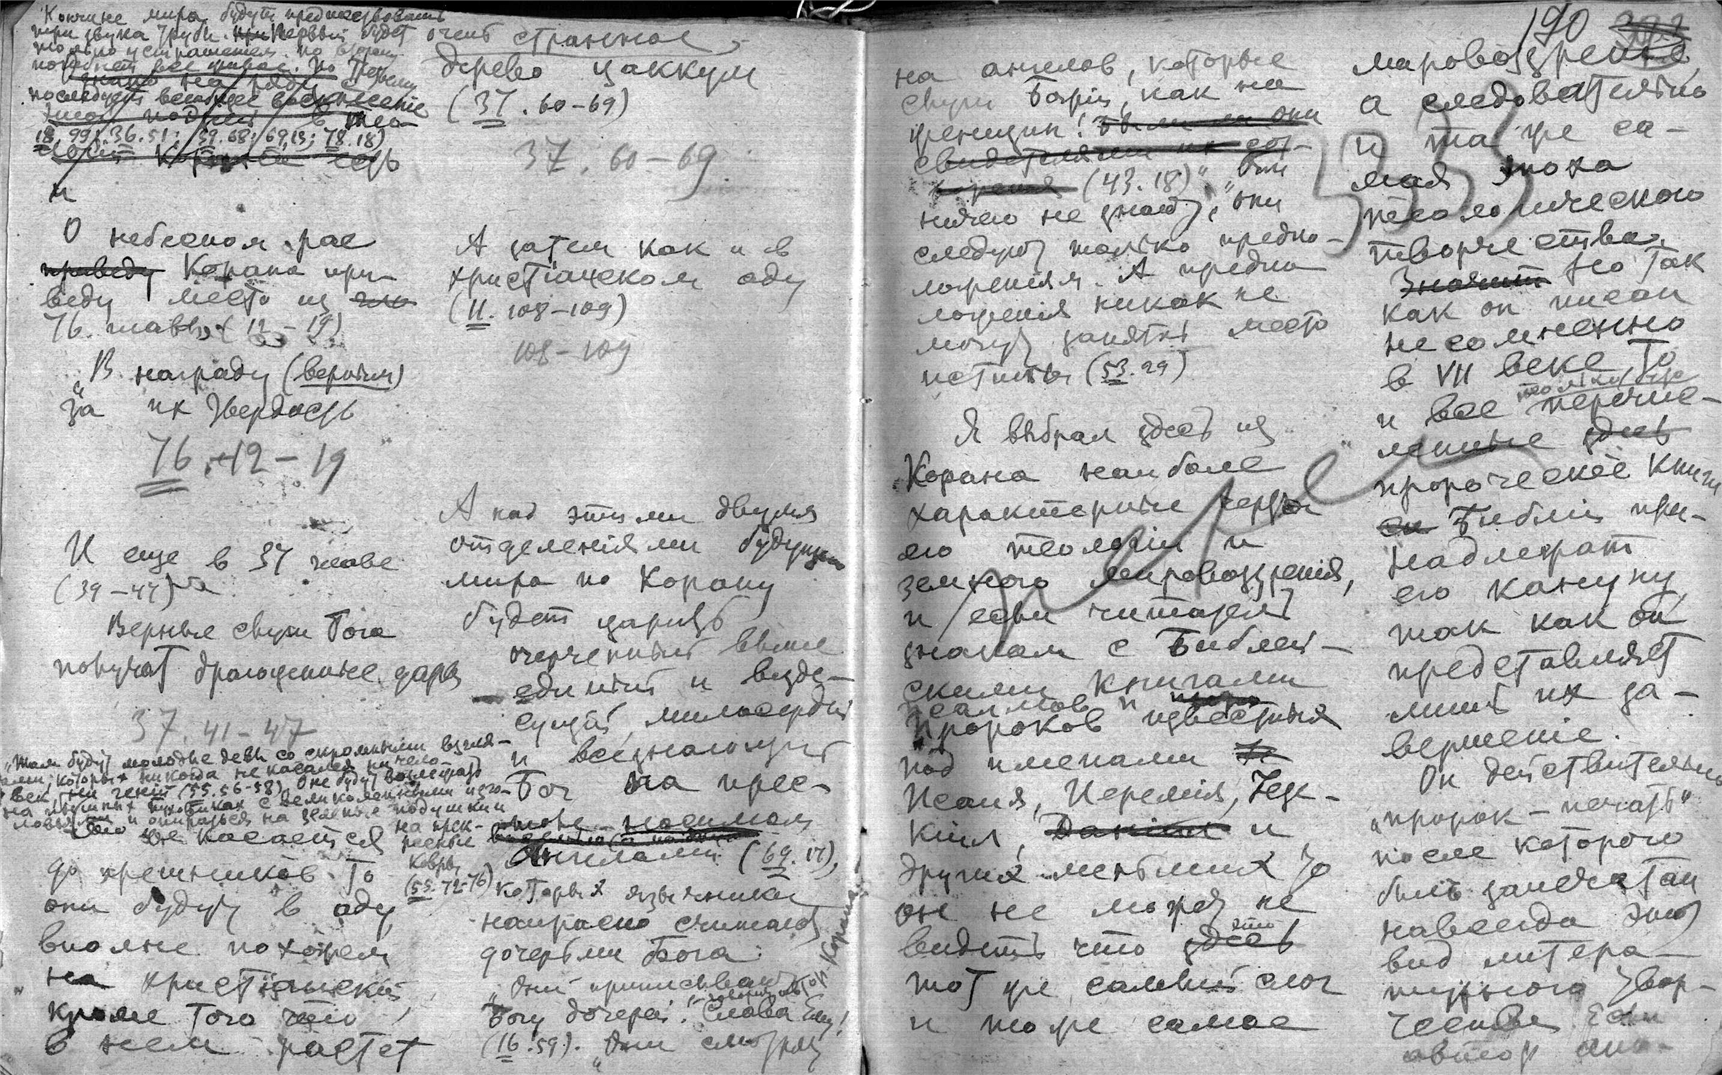 Кончине мира будут предшествовать
три звука трубы. при первый будет
только устрашение по второй
погибнет все живое. По третьему
последует всеобщее воскресение
18.99; 36.51; 39.68; 69.13; 78.18)
и
О небесном рае
приведу Корана при-
веду место из
76. главы (12–19)
"В награду (верным)
за их твердость
76. 12–19
И еще в 37 главе
(39–47)
Верные слуги Бога
получат драгоценные дары
37. 41–47
"Там будут молодые девы со скромными взгля-
дами, которых никогда не касался ни чело-
век ни гений (55. 56–58) Оне будут возлежать
на пышных с великолепными изго-
ловьями и опираться на зеленые подушки и
на прек-
расные
ковры
(55. 72–76)
Что же касается
до грешников то
они будут в аду,
вполне похожем
на христианский
кроме того что
в нем растет
очень странное
дерево Цаккум
(37. 60–69)
37. 60–69
А затем как и в
христіанском аду
(11. 108–109)
108–109
А над этими двумя
отделеніями будущаго
мира по Корану
будет царить
очерченный выше
единый и везде-
сущій, милосердый
и всезнающий
Бог на прес-
толе носимом
Ангелами (69. 17),
которых язычники
напрасно считают
дочерьми Бога:
"Они приписывают
Богу дочерей! Слава Ему!
(16. 59). "Они смотрят
190
на ангелов, которые
слуги Божіи, как на
женщин! Были ли они
свидетелями их сот-
ворения (43. 18)" "Они
ничего не знают, они
следуют только предпо-
ложеніям. А предпо
ложенія никак не
могут занять место
истины (53. 29)
Я выбрал здесь из
Корана наиболее
характерные черты
его теологіи и
земного мировоззренія,
и если читатель
знаком с Библей-
скими книгами
псалмов и
пророков известных
под именами
Исаія, Іеремія, Іезе-
кіил, Даніил и
других меньших то
он не может не
видеть что здесь
это
тот же самый слог
и то же самое
мировоззрение,
а следовательно
и та же са-
мая эпоха
теологического
творчества.
Значит Но так
как он писан
несомненно
в VII веке то
и все перечис-
ленные здесь
пророческіе книги
Библіи при-
надлежат
его кануну,
так как он
представляет
лишь их за-
вершеніе.
Он действительно
"пророк – печать"
после которого
был запечатан
навсегда этот
вид литера-
турного твор-
чества. Если
автор
333